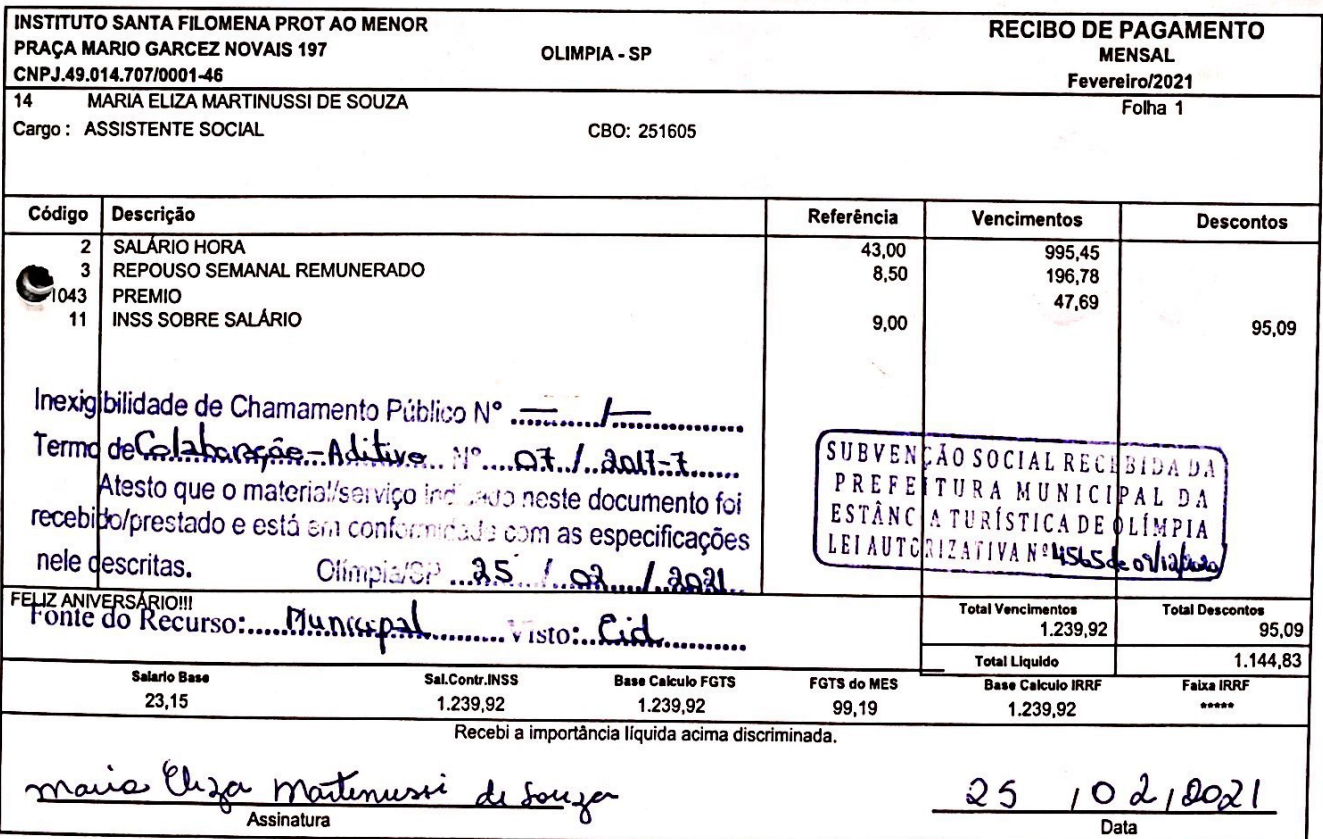 INSTITUTO SANTA FILOMENA PROT AO MENOR
PRAÇA MARIO GARCEZ NOVAIS 197
CNPJ.49.014.707/0001-46
OLIMPIA - SP
RECIBO DE PAGAMENTO
MENSAL
Fevereiro/2021
14 MARIA ELIZA MARTINUSSI DE SOUZA
Folha 1
Cargo : ASSISTENTE SOCIAL CBO: 251605
Código Descrição Referência Vencimentos Descontos
2 SALÁRIO HORA 43,00 995,45
3 REPOUSO SEMANAL REMUNERADO 8,50 196,78
1043 PREMIO 47,69
11 INSS SOBRE SALÁRIO 9,00 95,09
Inexigibilidade de Chamamento Público Nº — / —
Termo de Colaboração - Aditivo Nº 07 / 2017-7
Atesto que o material/serviço indicado neste documento foi
recebido/prestado e está em conformidade com as especificações
nele descritas. Olímpia/SP 25 / 02 / 2021
SUBVENÇÃO SOCIAL RECEBIDA DA
PREFEITURA MUNICIPAL DA
ESTÂNCIA TURÍSTICA DE OLÍMPIA
LEI AUTORIZATIVA Nº 4565 de 01/12/2020
FELIZ ANIVERSÁRIO!!!
Fonte do Recurso: Municipal Visto: Cid
Total Vencimentos Total Descontos
1.239,92 95,09
Total Liquido 1.144,83
Salario Base Sal.Contr.INSS Base Calculo FGTS FGTS do MES Base Calculo IRRF Faixa IRRF
23,15 1.239,92 1.239,92 99,19 1.239,92 *****
Recebi a importância líquida acima discriminada.
Maria Eliza Martinussi de Souza 25 / 02 / 2021
Assinatura Data